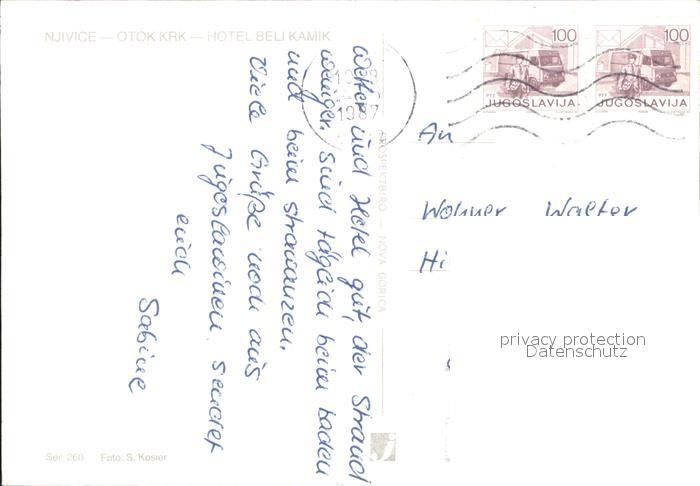 NJIVICE — OTOK KRK — HOTEL BELI KAMIK
Wetter und Hotel gut, der Strand
weniger. Sind täglich beim baden
und beim strawanzen.
Viele Grüße noch aus
Jugoslawinen. sendet
euch
Sabine
PROSPEKTBIRO — NOVA GORICA
1987
100
PTT
JUGOSLAVIJA
100
PTT
JUGOSLAVIJA
An
Wohner Walter
Hi
privacy protection
Datenschutz
Ser. 260 Foto: S. Kosier